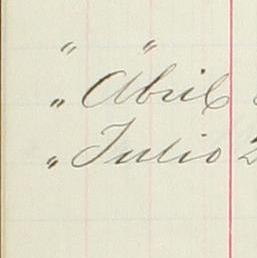 " "
" Abril
" Julio 2